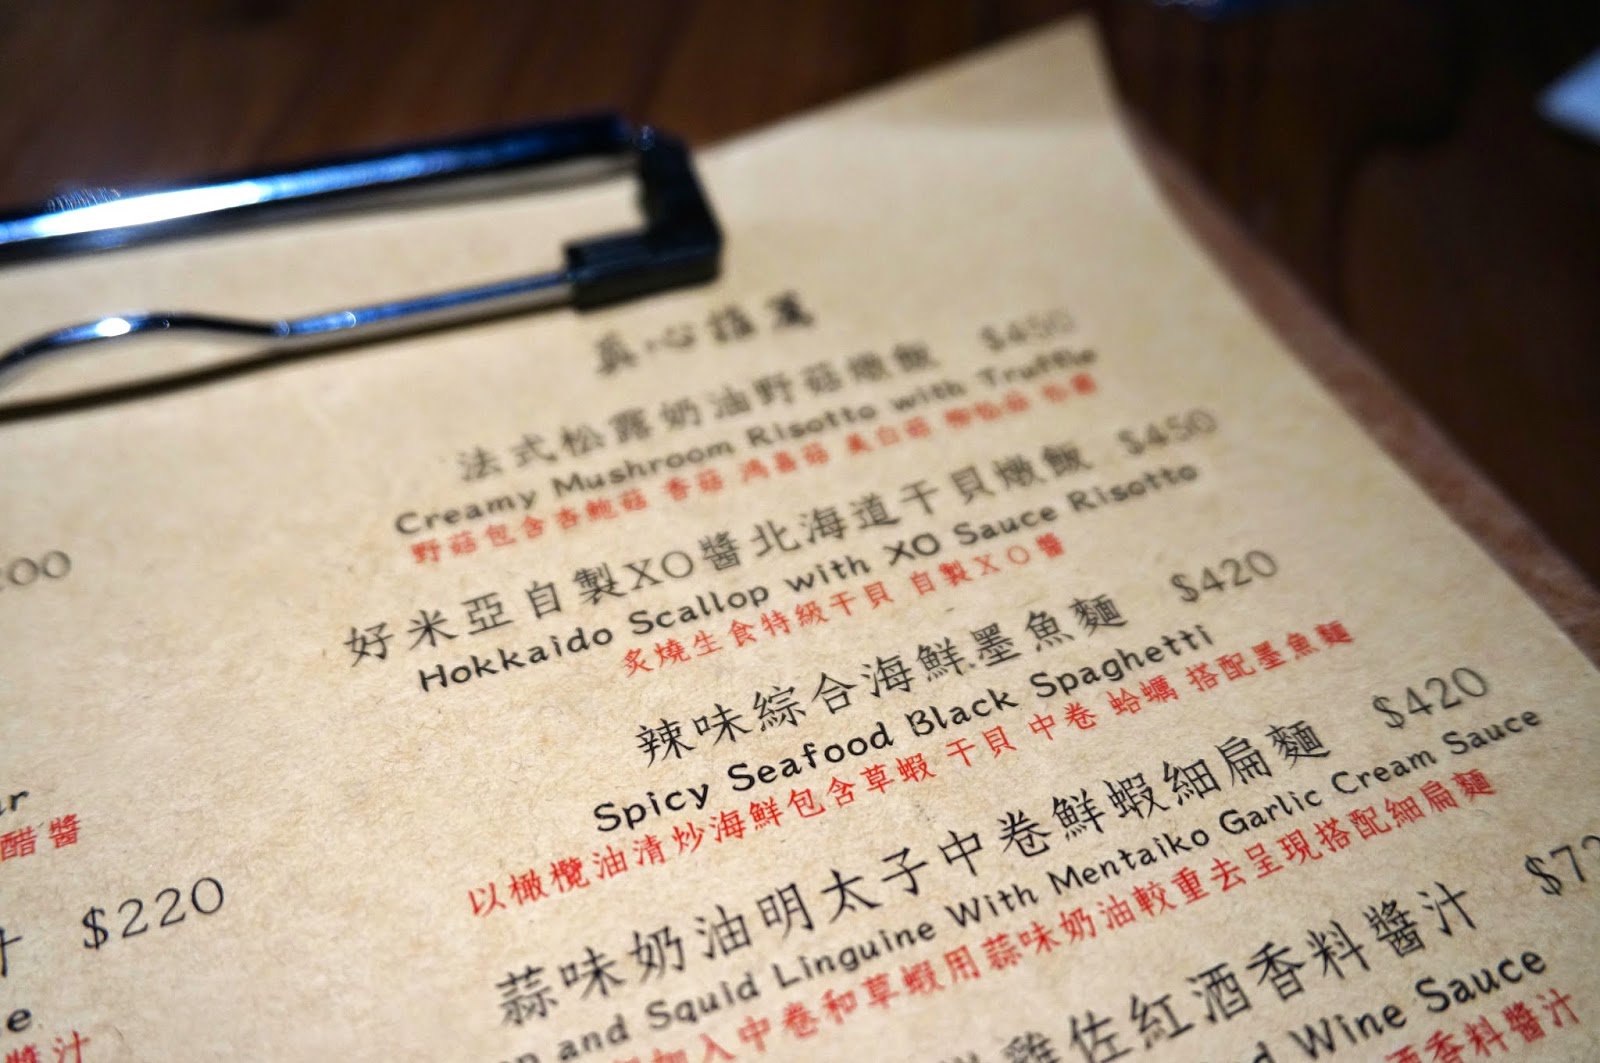 真心推薦
法式松露奶油野菇燉飯 $450
Creamy Mushroom Risotto with Truffle
野菇包含杏鮑菇 香菇 鴻喜菇 美白菇 柳松菇 松露
好米亞自製XO醬北海道干貝燉飯 $450
Hokkaido Scallop with XO Sauce Risotto
炙燒生食特級干貝 自製XO醬
辣味綜合海鮮墨魚麵 $420
Spicy Seafood Black Spaghetti
以橄欖油清炒海鮮包含草蝦 干貝 中卷 蛤蠣 搭配墨魚麵
蒜味奶油明太子中卷鮮蝦細扁麵 $420
and Squid Linguine With Mentaiko Garlic Cream Sauce
加入中卷和草蝦用蒜味奶油較重去呈現搭配細扁麵
雞佐紅酒香料醬汁 $72
Wine Sauce
酒香料醬汁
醋醬
汁 $220
醬汁